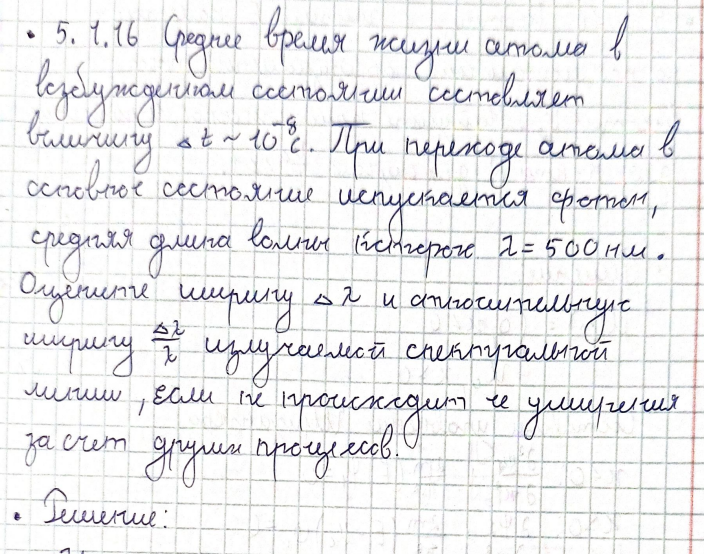 • 5.1.16 Среднее время жизни атома в
возбужденном состоянии составляет
величину Δt ~ 10⁻⁸ с. При переходе атома в
основное состояние испускается фотон,
средняя длина волны которого λ = 500 нм.
Оцените ширину Δλ и относительную
ширину Δλ/λ излучаемой спектральной
линии, если не происходит ее уширения
за счет других процессов.
• Решение: